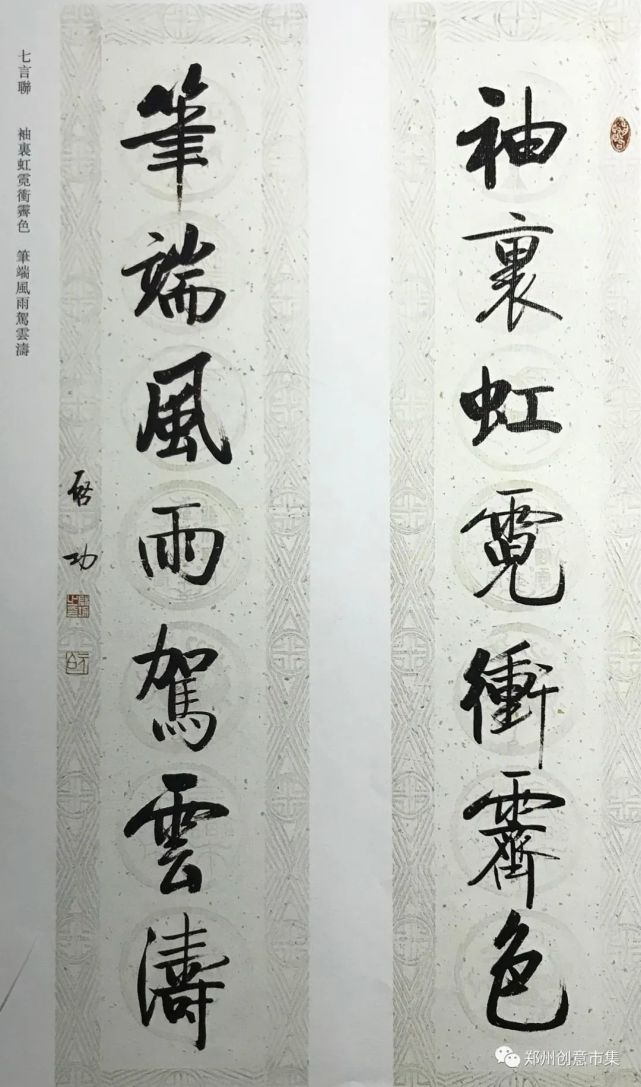 袖裏虹霓衝霽色
筆端風雨駕雲濤
啓功
七言聯 袖裏虹霓衝霽色 筆端風雨駕雲濤
郑州创意市集